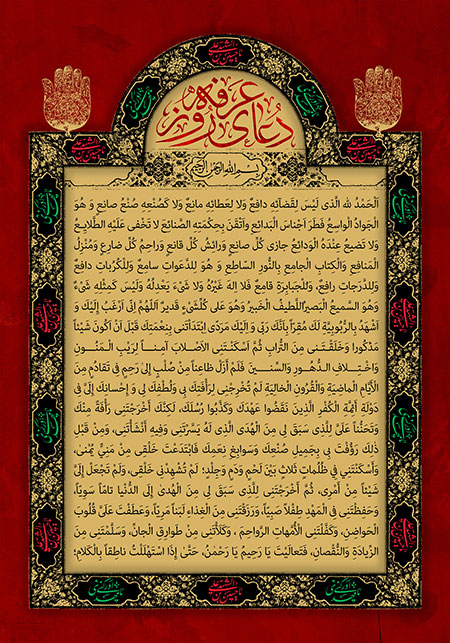 دعای روز عرفه
بسم الله الرحمن الرحیم
اَلْحَمْدُ لله الَّذی لَیْسَ لِقَضآئِهِ دافِعٌ وَلا لِعَطائِهِ مانِعٌ وَلا کَصُنْعِهِ صُنْعُ صانِعٍ وَ هُوَ
الْجَوادُ الْواسِعُ فَطَرَ اَجْناسَ الْبَدائِعِ واَتْقَنَ بِحِکْمَتِهِ الصَّنائِعَ لا تَخْفی عَلَیْهِ الطَّلایِـعُ
وَلا تَضیعُ عِنْدَهُ الْوَدائِعُ جازی کُلِّ صانِعٍ وَرائِشُ کُلِّ قانعٍ وَراحِمُ کُلِّ ضارِعٍ وَمُنْزِلُ
الْمَنافِعِ وَالْکِتابِ الْجامِعِ بِالنُّورِ السّاطِعِ وَ هُوَ لِلدَّعَواتِ سامِعٌ وَلِلْکُرُباتِ دافِعٌ
وَلِلدَّرَجاتِ رافِعٌ، وَلِلْجَبابِرَةِ قامِعٌ فَلا اِلهَ غَیْرُهُ وَلا شَیءَ یَعْدِلُهُ وَلَیْسَ کَمِثْلِهِ شَیْءٌ
وَهُوَ السَّمیعُ الْبَصیرُاللَّطیفُ الْخَبیرُ وَهُوَ عَلی کُلِّشَیْءٍ قَدیرٌ اَللّهُمَّ اِنّی اَرْغَبُ إِلَیْكَ وَ
اَشْهَدُ بِالرُّبُوبِیَّةِ لَكَ مُقِرّاً بِاَنَّكَ رَبّی وَ اِلَیْكَ مَرَدّی اِبْتَدَأتَنی بِنِعْمَتِكَ قَبْلَ اَنْ اَکُونَ شَیْئاً
مَذْکُورا وَخَلَقْتَنی مِنَ التُّرابِ ثُمَّ اَسْکَنْتَنِی الاَصْلابَ آمِنـاً لِرَیْبِ الْمَنُـونِ
وَاخْتِـلافِ الـدُّهُورِ وَالسِّنیـنَ فَلَمْ اَزَلْ ظاعِناً مِنْ صُلْبٍ اِلی رَحِمٍ فی تَقادُمٍ مِنَ
الاَیّامِ الْماضِیَةِ وَالْقُرُونِ الْخالِیَةِ لَمْ تُخْرِجْنی لِرَأفَتِكَ بی وَلُطْفِكَ لی وَ اِحْسانِكَ اِلَیَّ فی
دَوْلَةِ اَئِمَّةِ الْکُفْرِ الَّذینَ نَقَضُوا عَهْدَكَ وَکَذَّبُوا رُسُلَكَ، لکِنَّكَ اَخْرَجْتَنی رَأفَةً مِنْكَ
وَتَحَنُّناً عَلَیَّ لِلَّذی سَبَقَ لی مِنَ الْهُدَی الَّذی لَهُ یَسَّرْتَنی وَفیهِ اَنْشَأتَنی، وَمِنْ قَبْلِ
ذلِكَ رَؤُفْتَ بی بِجَمیلِ صُنْعِكَ وَسَوابِغِ نِعَمِكَ فابْتَدَعْتَ خَلْقی مِنْ مَنِیٍّ یُمْنی،
وَاَسْکَنْتَنی فی ظُلُماتٍ ثَلاثٍ بَیْنَ لَحْمٍ وَدَمٍ وَجِلْدٍ؛ لَمْ تُشْهِدْنی خَلْقی، وَلَمْ تَجْعَلْ اِلَیَّ
شَیْئاً مِنْ اَمْری، ثُمَّ اَخْرَجْتَنی لِلَّذی سَبَقَ لی مِنَ الْهُدی اِلَی الدُّنْیا تامّاً سَوِیّاً،
وَحَفِظْتَنی فِی الْمَهْدِ طِفْلاً صَبِیّاً، وَرَزَقْتَنی مِنَ الْغِذآءِ لَبَناً مَرِیّاً، وَعَطَفْتَ عَلَیَّ قُلُوبَ
الْحَواضِنِ، وَکَفَّلْتَنی الاُمَّهاتِ الرَّواحِمَ ، وَکَلَأتَنی مِنْ طَوارِقِ الْجآنِّ، وَسَلَّمْتَنی مِنَ
الزِّیادَةِ وَالنُّقْصانِ، فَتَعالَیْتَ یا رَحیمُ یا رَحْمنُ، حَتّیْ إِذَا اسْتَهْلَلْتُ ناطِقاً بِالْکَلامِ؛